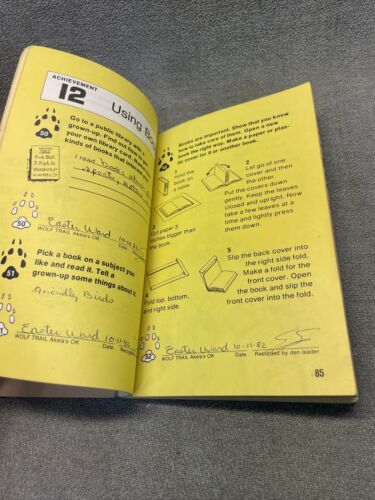 ACHIEVEMENT
12
Using Bo
50
Go to a public library with a
grown-up. Find out how
your own library card. Name
kinds of books that
I read books about
sports,
50
Easter Ward 10-11-82
WOLF TRAIL Akela's OK Date
51
Pick a book on a subject you
like and read it. Tell a
grown-up some things about it.
Friendly Birds
Easter Ward 10-11-82
WOLF TRAIL Akela's OK Date
Books are important. Show that you know
how to take care of them. Open a new
book the right way. Make a paper or plas-
tic cover for it or another book.
1
Hold the
book on
a table.
2
Let go of one
cover and then
the other.
Put the covers down
gently. Keep the leaves
closed and upright. Now
take a few leaves at a
time and lightly press
them down.
Cut paper 3
inches bigger than
the book.
4
Fold top, bottom,
and right side.
5
Slip the back cover into
the right side fold.
Make a fold for the
front cover. Open
the book and slip the
front cover into the fold.
52
Easter Ward 10-11-82
WOLF TRAIL Akela's OK Date Recorded by den leader
85